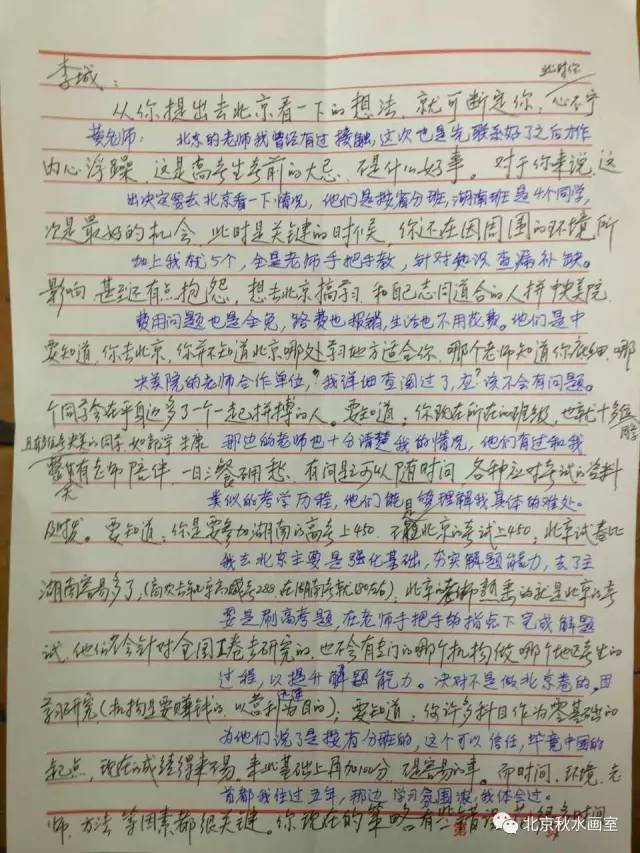 李城：
此时你
从你提出去北京看一下的想法，就可断定你，心不宁
黄老师： 北京的老师我曾经有过接触，这次也是先联系好了之后才作
内心浮躁 这是高考生考前的大忌、不是什么好事。对于你来说，这
出决定要去北京看一下情况，他们是按省分班，湖南班是4个同学，
次是最好的机会，此时是关键的时候，你还在因周围的环境所
加上我就5个，全是老师手把手教，针对知识查漏补缺。
影响 甚至还有点抱怨，想去北京搞学习，和自己志同道合的人拼央美院
费用问题也是全免，路费也报销，生活也不用花费。他们是中
要知道，你去北京，你并不知道北京哪处学习地方适合你，哪个老师知道你底细，哪
央美院的老师合作单位，我详细查阅过了，应该不会有问题。
个同学会在乎身边多了一个一起拼搏的人。要知道：你现在所在的班级，也就十多位
同学
且有考央美的同学 王康 那边的老师也十分清楚我的情况，他们有过和我
整天有老师陪伴，一日三餐不用愁、有问题可以随时问，各种应对考试的资料
类似的考学历程，他们能够理解我具体的难处。
及时发。要知道：你是要参加湖南的高考上450、不是北京的考试上450，北京试卷比
我去北京主要是强化基础，夯实解题能力，去了主
湖南容易多了，
要是刷高考题，在老师手把手的指点下完成解题
试，他们不会针对全国I卷去研究的，也不会有专门的哪个机构做哪个地区考生的
过程，以提升解题能力。决对不是做北京卷的，因
学习研究（机构是要赚钱的，以营利为目的）；要知道：你许多科目作为零基础的
为他们说了是按省分班的，这个可以信任，毕竟中国的
起点，现在的成绩得来不易，来此基础上再加100分，不是容易的事。而时间、环境、老
首都我住过五年，那边学习氛围浓，我体会过。
师、方法等因素都很关键。你现在的策略有些错误
北京秋水画室